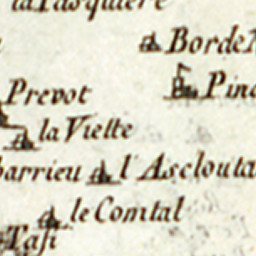 la Pasquiere
Borde
Pin
Prevot
la Viette
barrieu
l'Asclouta
le Comtal
Tasi